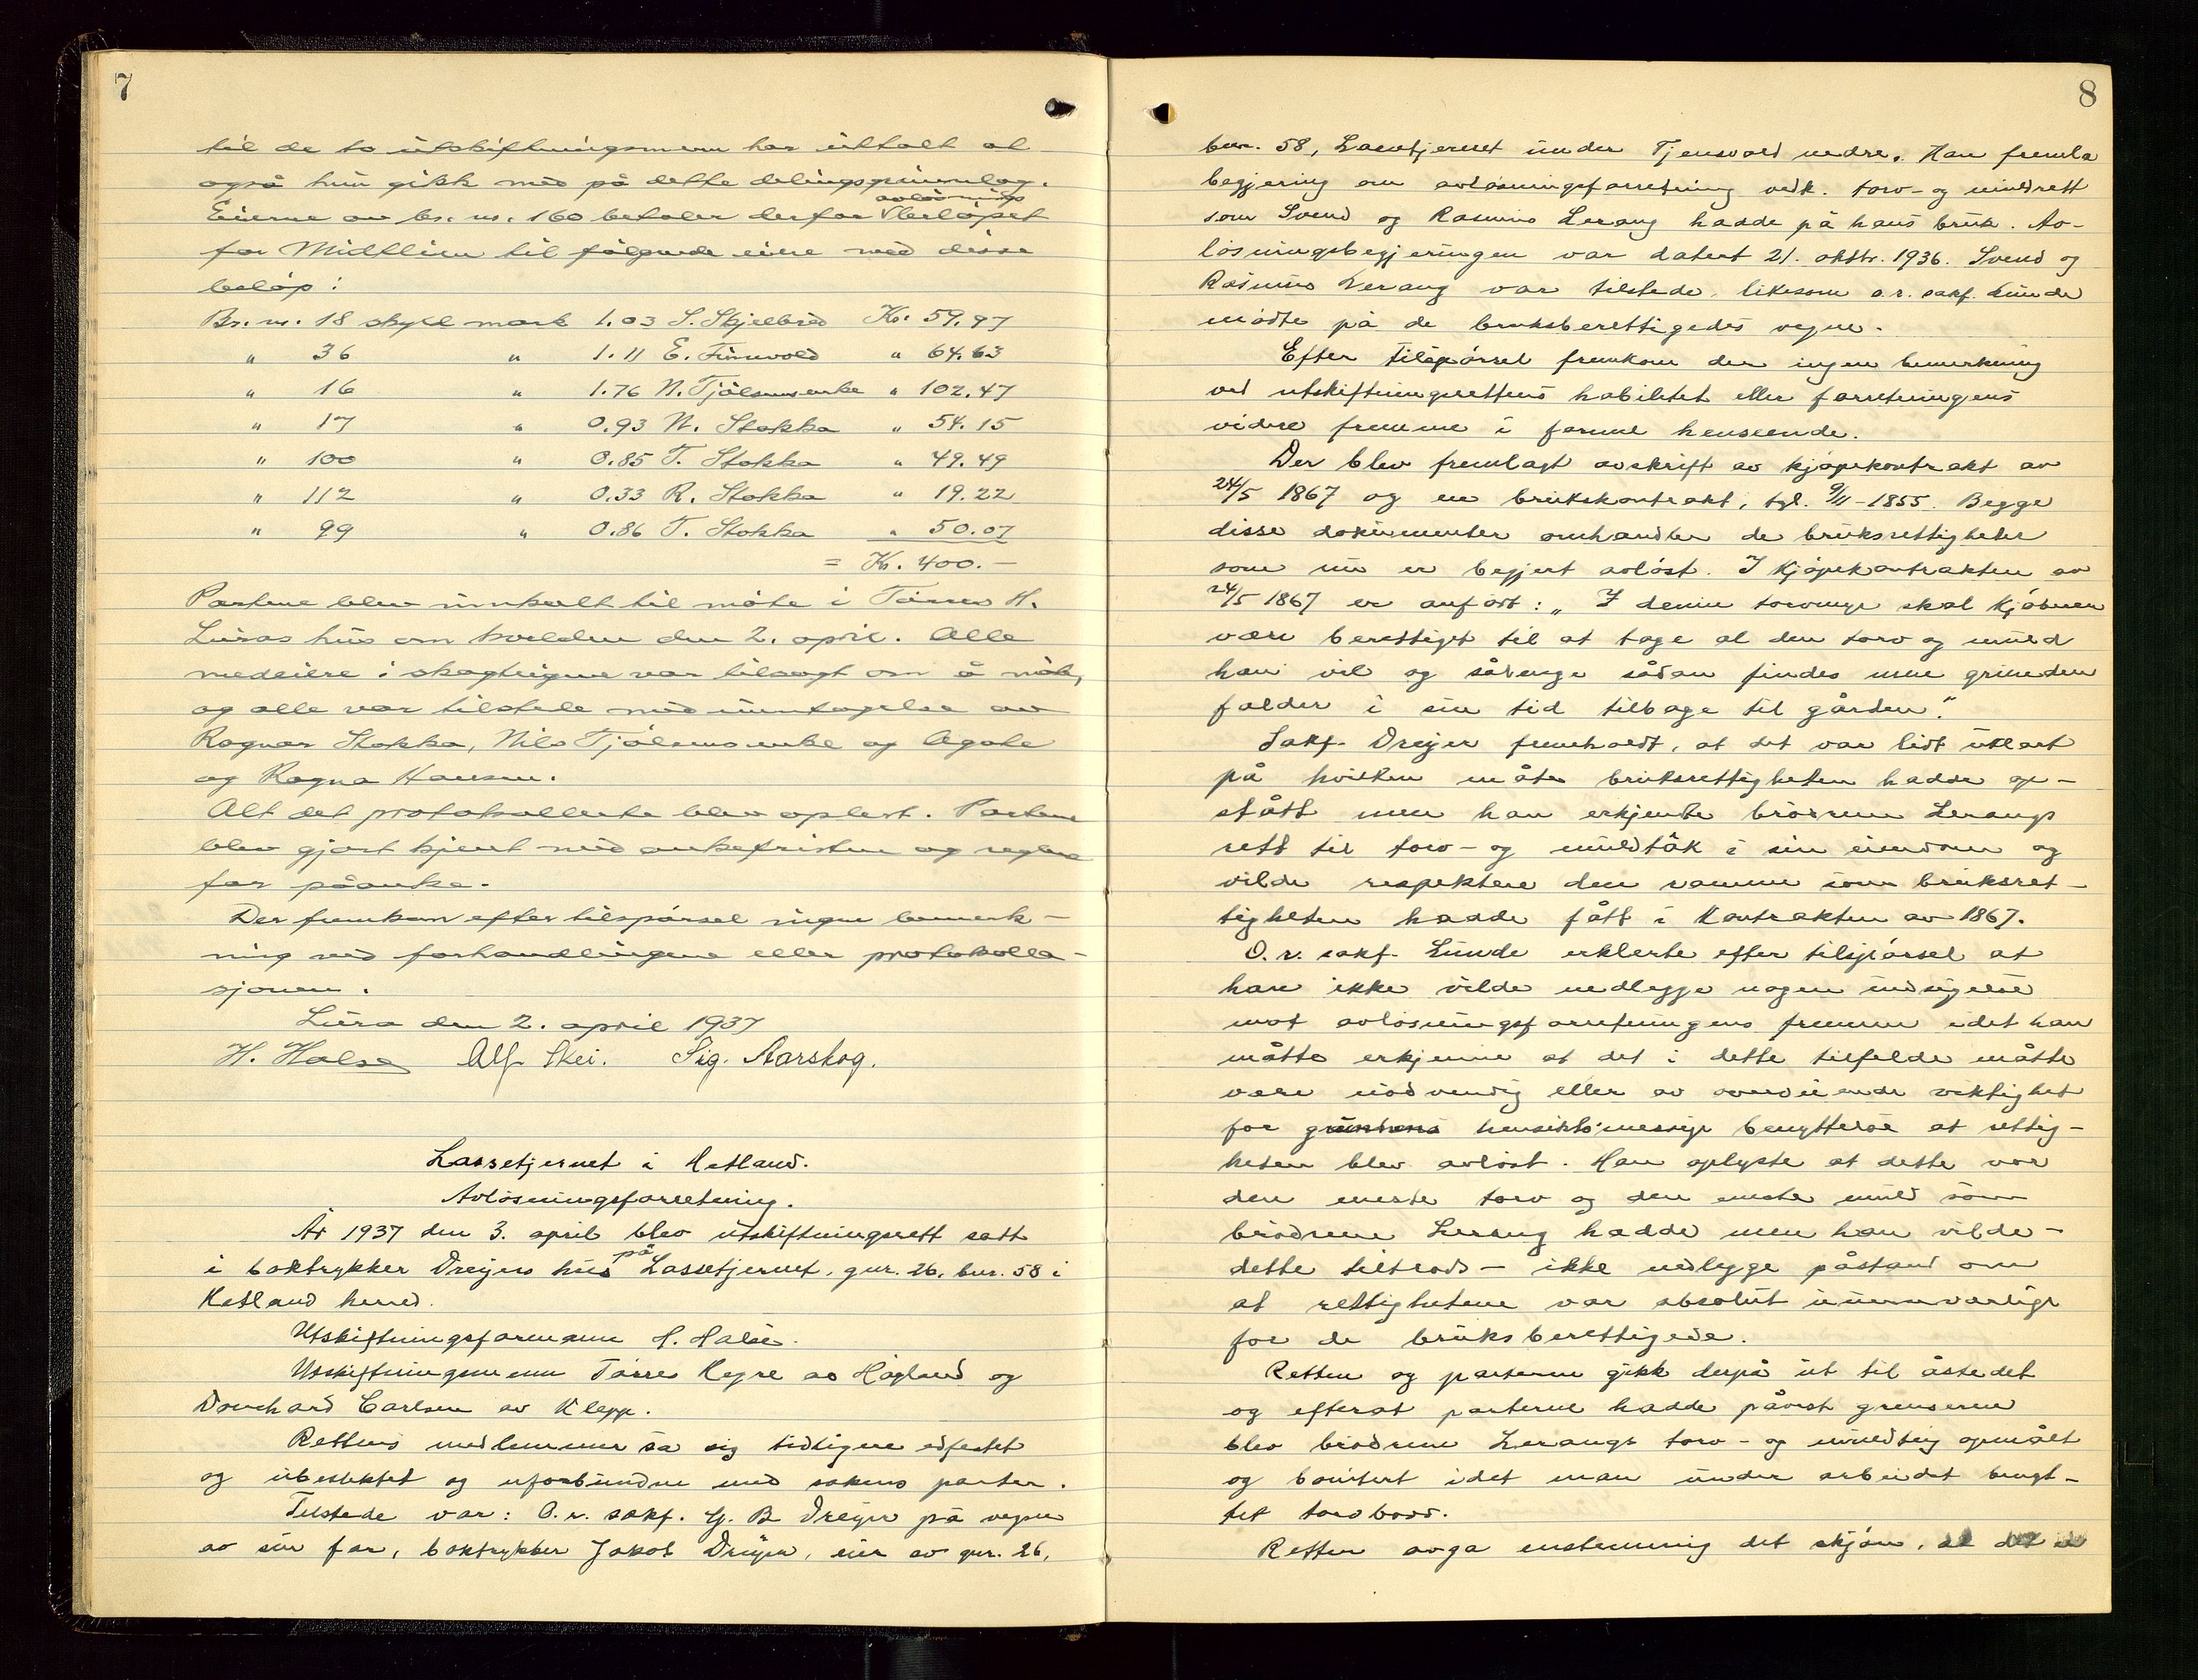 7
til de to utskiftningsmenn har uttalt at
også hun gikk med på dette delingsgrunnlag.
avløsnings
Eierne av br. nr. 160 betaler derfor beløpet
for Midtlien til følgende eiere med disse
beløp:
Br. nr. 18 skyld mark 1.03 S. Skjelbred Kr. 59.97
" 36 " 1.11 E. Finnvold " 64.63
" 16 " 1.76 N. Tjålsmsenke " 102.47
" 17 " 0.93 N. Stokka " 54.15
" 100 " 0.85 T. Stokka " 49.49
" 112 " 0.33 R. Stokka " 19.22
" 99 " 0.86 T. Stokka " 50.07
= Kr. 400.-
Partene blev innkalt til møte i Tørres H.
Luras hus om kvelden den 2. april. Alle
medeiere i skogteigene var tilsagt om å møte,
og alle var tilstede med unntagelse av
Ragnar Stokka, Nils Tjålsmsenke og Agate
og Ragna Hansen.
Alt det protokollerte blev oplest. Partene
blev gjort kjent med ankefristen og reglene
for påanke.
Der fremkom efter tilspørsel ingen bemerk-
ning ved forhandlingene eller protokolla-
sjonen.
Lura den 2. april 1937
H. Halse Alf Skei. Sig. Aarskog.
Lassetjernet i Hetland.
Avløsningsforretning.
År 1937 den 3. april blev utskiftningsrett satt
på
i boktrykker Dreyers hus Lassetjernet, gnr. 26, bnr. 58 i
Hetland herred.
Utskiftningsformann H. Halse.
Utskiftningsmenn Tørres Hegre av Høyland og
Carlsen av Klepp.
Rettens medlemmer sa sig tidligere edfestet
og ubeslektet og uforbundne med sakens parter.
Tilstede var: O.r. sakf. G. B. Dreyer på vegne
av sin far, boktrykker Jakob Dreyer, eier av gnr. 26,
8
bnr. 58, Lassetjernet under Tjensvold nedre. Han fremla
begjering om avløsningsforretning vedk. torv- og muldrett
som Svend og Rasmus Lerang hadde på hans bruk. Av-
løsningsbegjeringen var datert 21. oktbr. 1936. Svend og
Rasmus Lerang var tilstede, likesom o.r. sakf. Lunde
møtte på de bruksberettigedes vegne.
Efter tilspørsel fremkom der ingen bemerkning
ved utskiftningsrettens habilitet eller forretningens
videre fremme i formel henseende.
Der blev fremlagt avskrift av kjøpekontrakt av
24/5 1867 og en brukskontrakt, tgl. 9/11-1855. Begge
disse dokumenter omhandler de bruksrettigheter
som nu er begjert avløst. I kjøpekontrakten av
24/5 1867 er anført: „I denne torvmyr skal kjøberen
være berettiget til at tage al den torv og muld
han vil og sålenge sådan findes men grunden
falder i sin tid tilbage til gården."
Sakf. Dreyer fremholdt, at det var lidt uklart
på hvilken måte bruksrettigheten hadde op-
stått men han erkjente brødrene Lerangs
rett til torv- og muldtak i sin eiendom og
vilde respektere den ramme som bruksret-
tigheten hadde fått i kontrakten av 1867.
O.r. sakf. Lunde erklerte efter tilspørsel at
han ikke vilde nedlegge nogen innsigelse
mot avløsningsforretningens fremme idet han
måtte erkjenne at det i dette tilfelde måtte
være nødvendig eller av overveiende viktighet
for grunnens hensiktsmessige benyttelse at rettig-
heten blev avløst. Han oplyste at dette var
den eneste torv og den eneste muld som
brødrene Lerang hadde men han vilde -
dette tiltrods - ikke nedlegge påstand om
at rettighetene var absolut uunnværlige
for de bruksberettigede.
Retten og parterne gikk derpå ut til åstedet
og efterat parterne hadde påvist grensene
blev brødrene Lerangs torv- og muldteig opmålt
og bonitert idet man under arbeidet benyt-
tet torvbor.
Retten avga enstemmig det skjønn, at det